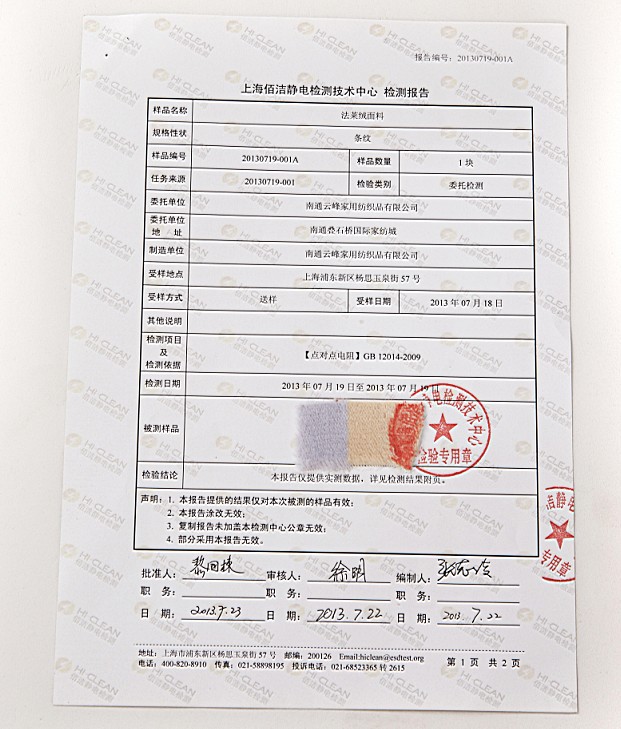 报告编号：20130719-001A
上海佰洁静电检测技术中心 检测报告
样品名称 法莱绒面料
规格性状 条纹
样品编号 20130719-001A 样品数量 1 块
任务来源 20130719-001 检验类别 委托检测
委托单位 南通云峰家用纺织品有限公司
委托单位
地 址 南通叠石桥国际家纺城
制造单位 南通云峰家用纺织品有限公司
受样地点 上海浦东新区杨思玉泉街 57 号
受样方式 送样 受样日期 2013 年 07 月 18 日
其他说明
检测项目
及
检测依据
【点对点电阻】GB 12014-2009
检测日期 2013 年 07 月 19 日至 2013 年 07 月 19 日
被测样品
电检测技术中心
检验专用章
检验结论 本报告仅提供实测数据，详见检测结果附页。
声明：1. 本报告提供的结果仅对本次被测的样品有效；
2. 本报告涂改无效；
3. 复制报告未加盖本检测中心公章无效；
4. 部分采用本报告无效。
洁静电
专用章
批准人： 审核人：徐明 编制人：
职 务： 职 务： 职 务：
日 期：2013.7.23 日 期：2013.7.22 日 期：2013.7.22
地址：上海市浦东新区杨思玉泉街 57 号 邮编：200126 Email:hiclean@esdtest.org
电话：400-820-8910 传真：021-58898195 投诉电话：021-68523365 转 2615
第 1 页 共 2 页
HI CLEAN
佰洁静电检测